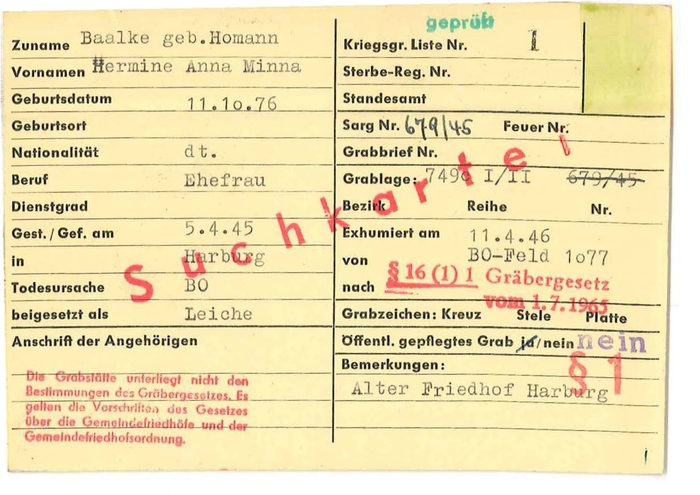 geprüft
Zuname Baalke geb.Homann
Vornamen Hermine Anna Minna
Geburtsdatum 11.1o.76
Geburtsort
Nationalität dt.
Beruf Ehefrau
Dienstgrad
Gest./Gef. am 5.4.45
in Harburg
Todesursache BO
beigesetzt als Leiche
Anschrift der Angehörigen
Die Grabstätte unterliegt nicht den
Bestimmungen des Gräbergesetzes. Es
gelten die Vorschriften des Gesetzes
über die Gemeindefriedhöfe und der
Gemeindefriedhofsordnung.
Suchkartei
Kriegsgr. Liste Nr. I
Sterbe-Reg. Nr.
Standesamt
Sarg Nr. 679/45 Feuer Nr.
Grabbrief Nr.
Grablage: 749c I/II 679/45
Bezirk Reihe Nr.
Exhumiert am 11.4.46
von BO-Feld 1o77
nach § 16 (1) 1 Gräbergesetz
vom 1.7.1965
Grabzeichen: Kreuz Stele Platte
Öffentl. gepflegtes Grab ja/nein nein
Bemerkungen: § 1
Alter Friedhof Harburg